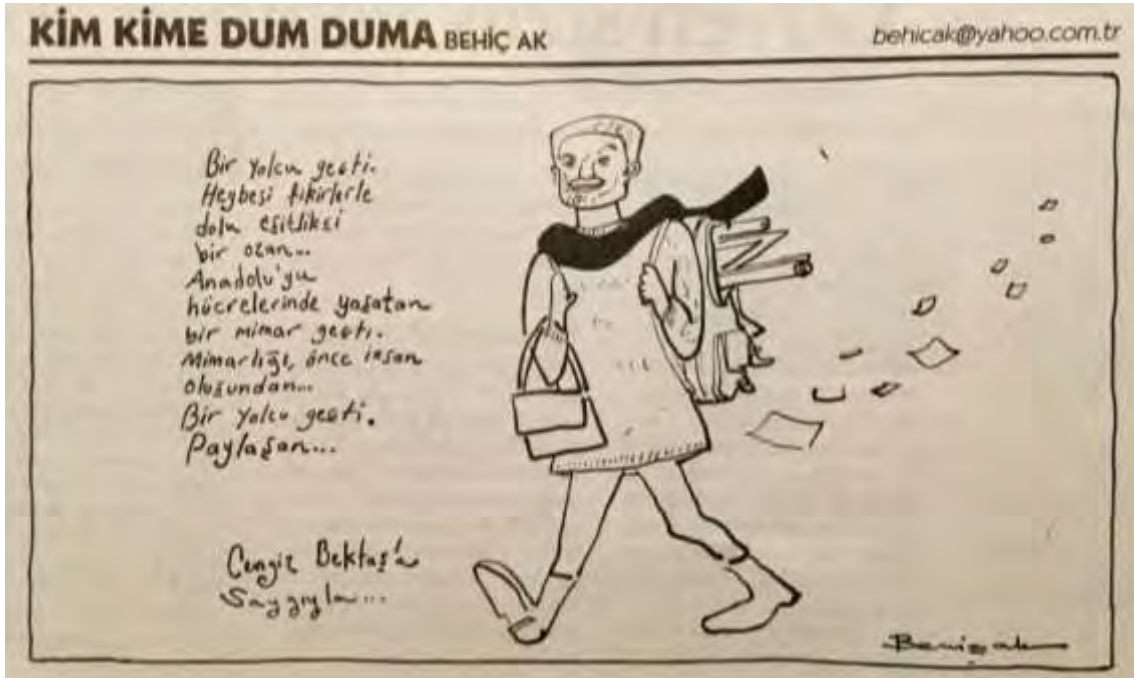 KİM KİME DUM DUMA BEHİÇ AK
behicak@yahoo.com.tr
Bir yolcu geçti.
Heybesi fikirlerle
dolu eşitlikçi
bir ozan...
Anadolu'yu
hücrelerinde yaşatan
bir mimar geçti.
Mimarlığı, önce insan
oluşundan...
Bir yolcu geçti.
Paylaşan...
Cengiz Bektaş'a
Saygıyla...
Behiç ak